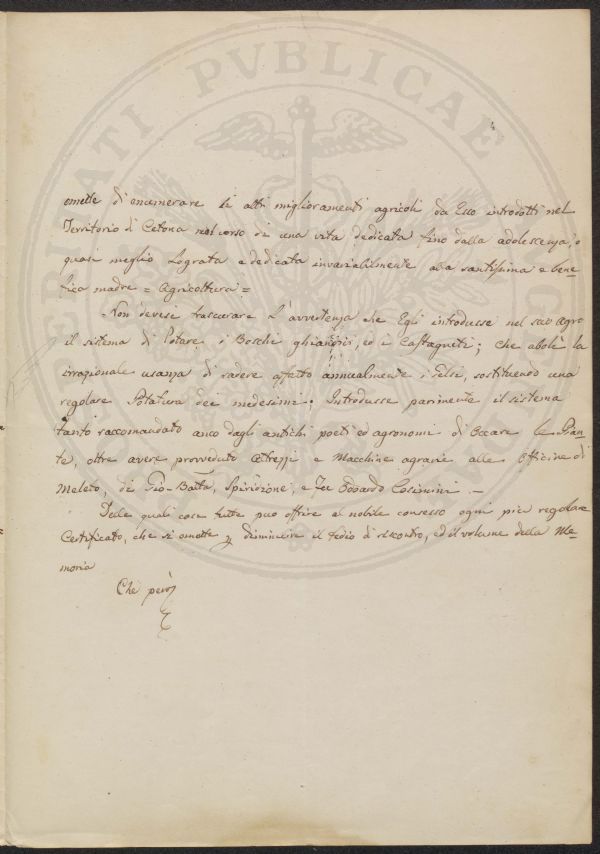 4
omette di enumerare le altri miglioramenti agricoli da Esso introdotti nel
Territorio di Cetona nel corso di una vita dedicata fino dalla adolescenza, o
quasi meglio Lograta e dedicata invariabilmente alla santissima e bene=
fica madre = Agricoltura =
= Non devesi trascurare L'avvertenza che Egli introdusse nel suo Agro
il sistema di Potare i Boschi ghiandiferi, ed i Castagneti; che abolì la
irrazionale usanza di radere affatto annualmente i Gelsi, sostituendo una
regolare Potatura dei medesimi; Introdusse parimente il sistema
tanto raccomandato anco dagli antichi poeti ed agronomi di Occare le Pian=
te, oltre avere provveduto Attrezzi e Macchine agrarie alle Officine di
Meleto, di Gio-Batta, Spiridione, e Odoardo Cosimini . =
Delle quali cose tutte può offrire al nobile consesso ogni più regolare
Certificato, che si omette diminuire il tedio di riscontro, ed il volume della Me=
moria
Che però